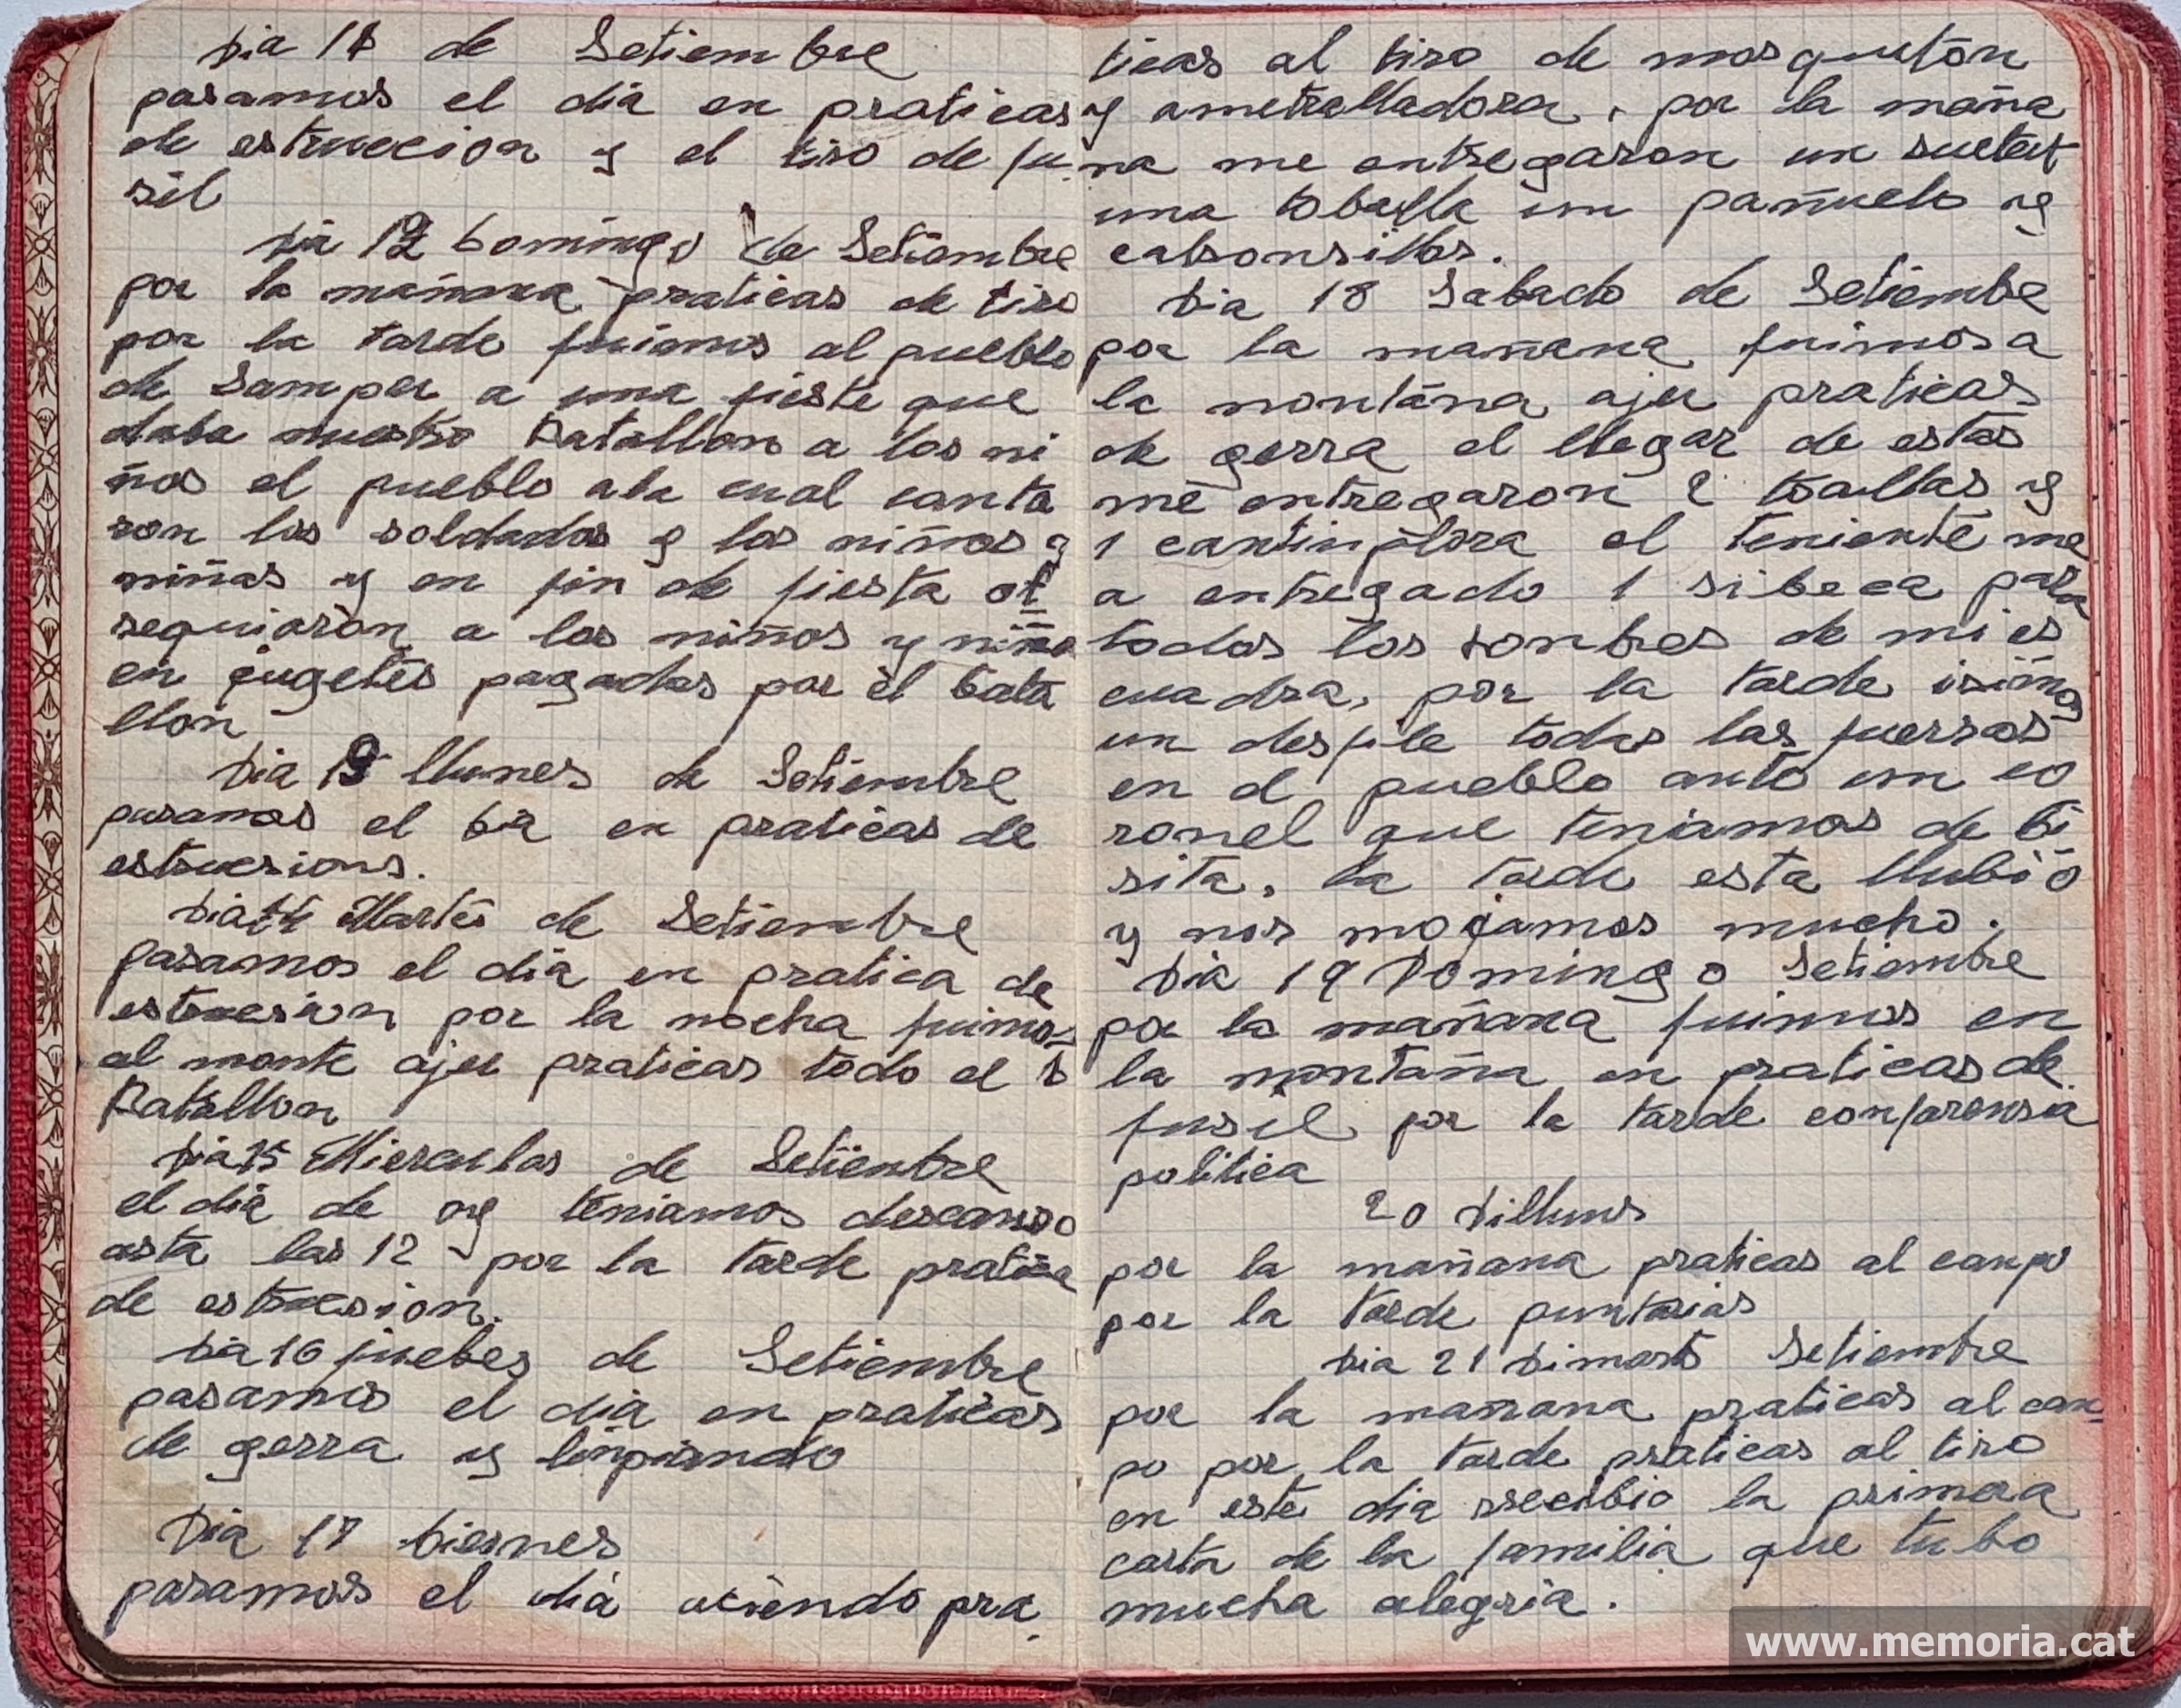 Dia 11 de Setiembre
pasamos el dia en praticas
de estruccion y el tiro de fu
sil
Dia 12 Domingo de Setiembre
por la mañana praticas de tiro
por la tarde fuimos al pueblo
de Samper a una fieste que
daba nuestro Batallon a los ni
ños el pueblo ala cual canta
ron los soldados y los niños y
niñas y en fin de fiesta ob
sequiaron a los niños y niñas
en jugetes pagados por el bata
llon
Dia 13 llunes de Setiembre
pasamos el dia en praticas de
estrucsions.
Dia 14 Martes de Setiembre
pasamos el dia en pratica de
estrucsion por la nocha fuimos
al monte ajer praticas todo el
Batallon
Dia 15 Miercules de Setiembre
el dia de oy teniamos descanso
asta las 12 por la tarde pratica
de estrucsion.
Dia 16 juebes de Setiembre
pasamos el dia en praticas
de gerra y linpiando
Dia 17 biernes
pasamos el dia aciendo pra
ticas al tiro de mosqueton
y ametralladora, por la maña
na me entregaron un
una toballa un pañuelo y
calsonsillos.
Dia 18 Sabado de Setiembe
por la mañana fuimos a
la montaña ajer praticas
de gerra el llegar de estas
me entregaron 2 toallas y
1 cantinplora el teniente me
a entregado 1 sibeca para
todos los honbres de mi es
cuadra, por la tarde isimos
un desfile todas las fuersas
en el pueblo ante un co
ronel que teniamos de bi
sita, la tarde esta llubio
y nos mojamos mucho.
Dia 19 Domingo Setiembre
por la mañana fuimos en
la montaña en praticas de
fusil por la tarde conferensia
politica
20 Dilluns
por la mañana praticas al canpo
por la tarde punterias
Dia 21 Dimarts Setiembre
por la mañana praticas al can
po por la tarde praticas al tiro
en este dia rrecibio la primera
carta de la familia que tubo
mucha alegria.
www.memoria.cat